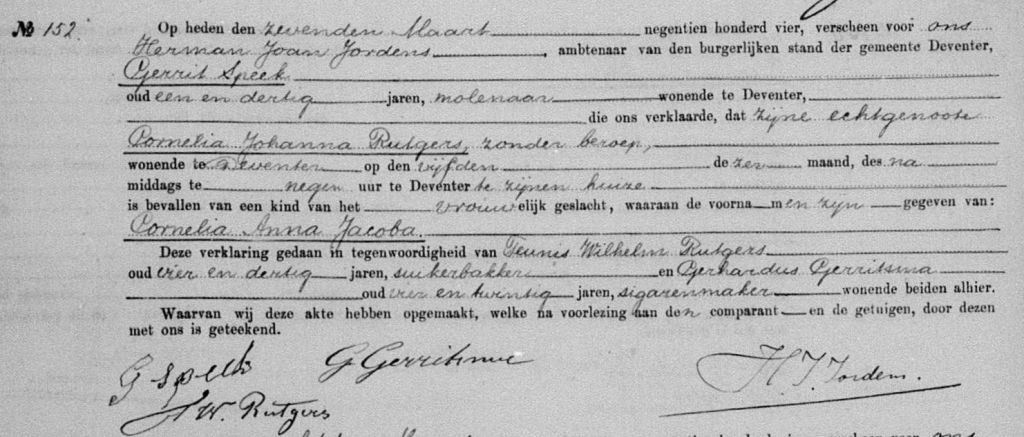 № 152. Op heden den zevenden Maart negentien honderd vier, verscheen voor ons
Herman Joan Jordens, ambtenaar van den burgerlijken stand der gemeente Deventer,
Gerrit Speek
oud een en dertig jaren, molenaar wonende te Deventer,
die ons verklaarde, dat zijne echtgenoote
Cornelia Johanna Rutgers, zonder beroep,
wonende te Deventer op den vijfden dezer maand, des na
middags te negen uur te Deventer te zijnen huize
is bevallen van een kind van het vrouwelijk geslacht, waaraan de voornamen zijn gegeven van:
Cornelia Anna Jacoba.
Deze verklaring gedaan in tegenwoordigheid van Teunis Wilhelm Rutgers
oud vier en dertig jaren, suikerbakker en Gerhardus Gerritsma
oud vier en twintig jaren, sigarenmaker wonende beiden alhier.
Waarvan wij deze akte hebben opgemaakt, welke na voorlezing aan den comparant en de getuigen, door dezen
met ons is geteekend.
G Speek G Gerritsma H J Jordens.
T W. Rutgers